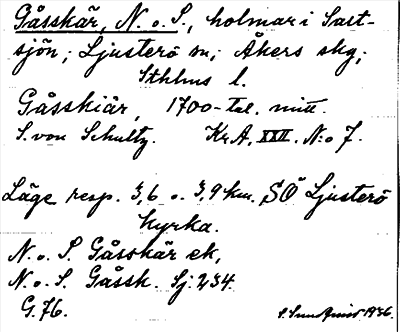 Gåsskär, N. o. S., holmar i Salt-
sjön; Ljusterö sn; Åkers skg;
Sthlms l.
Gåsskiär, 1700-tal. mitt.
S. von Schultz. Kr.A. XXII. N:o 7.
Läge resp. 3,6 o. 3,9 km. SÖ Ljusterö
kyrka.
N. o. S. Gåsskär ek,
N. o. S. Gåssk. Sj. 234.
G. 76.
1936.